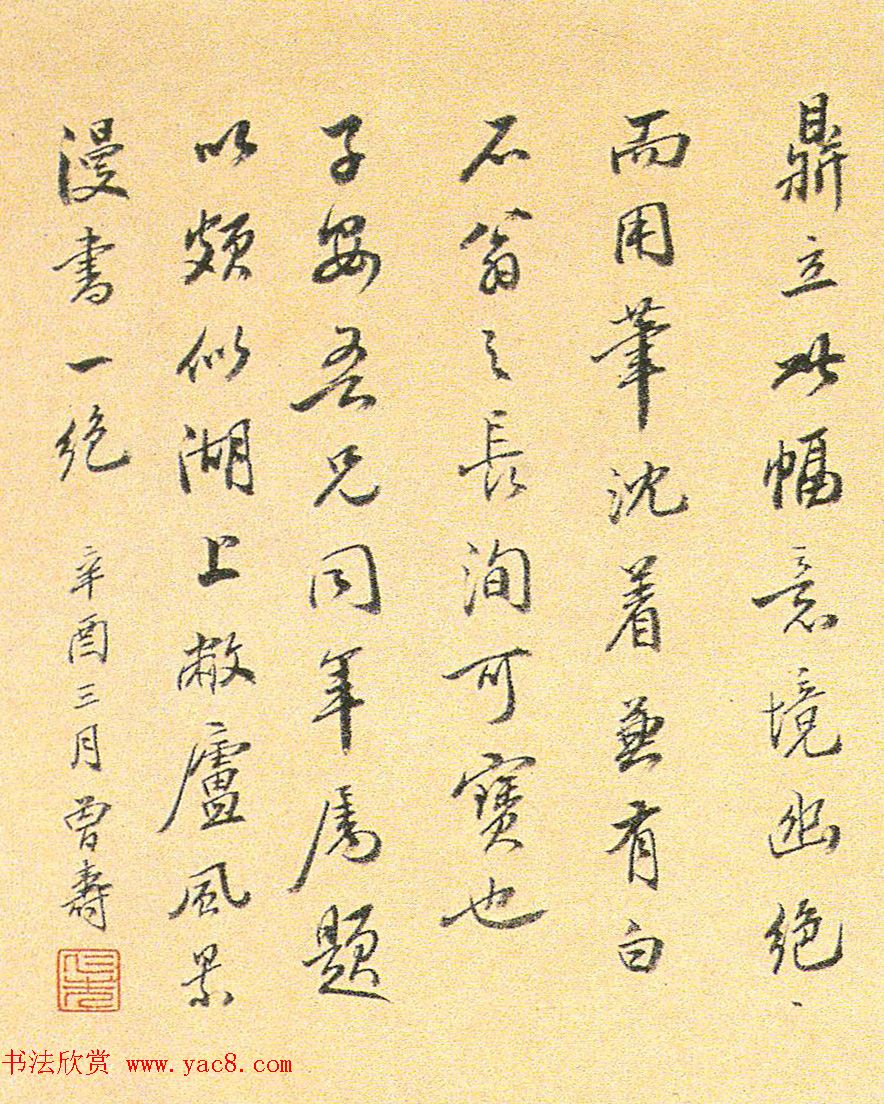 鼎立此幅意境幽絕
而用筆沈着兼有白
石翁之長洵可寶也
子安吾兄同年属題
以頗似湖上敝廬風景
漫書一絕 辛酉三月曾壽
书法欣赏 www.yac8.com